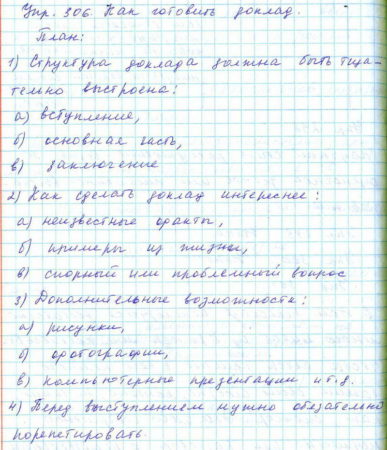 Упр. 306. Как готовить доклад.
План:
1) Структура доклада должна быть тща-
тельно выстроена:
а) вступление,
б) основная часть,
в) заключение
2) Как сделать доклад интереснее:
а) неизвестные факты,
б) примеры из жизни,
в) спорный или проблемный вопрос
3) Дополнительные возможности:
а) рисунки,
б) фотографии,
в) компьютерные презентации и т.д.
4) Перед выступлением нужно обязательно
порепетировать.